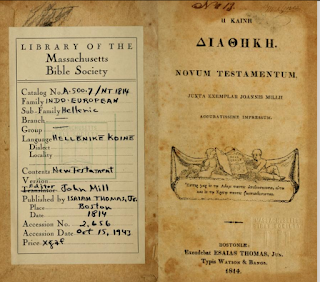 LIBRARY OF THE
Massachusetts
Bible Society
Catalog No. A.500.7/NT 1814
Family INDO-EUROPEAN
Sub-Family Hellenic
Branch —
Group —
Language HELLENIKE KOINE
Dialect
Locality
Contents New Testament
Version
Editor
Translator John Mill
Published by ISAIAH THOMAS, Jr.
Place Boston
Date 1814
Accession No. 2,656
Accession Date Oct 15, 1943
Price
Η ΚΑΙΝΗ
ΔΙΑΘΗΚΗ.
NOVUM TESTAMENTUM,
JUXTA EXEMPLAR JOANNIS MILLII
ACCURATISSIME IMPRESSUM.
BOSTONIÆ:
Excudebat ESAIAS THOMAS, Jun.
Typis WATSON & BANGS.
1814.